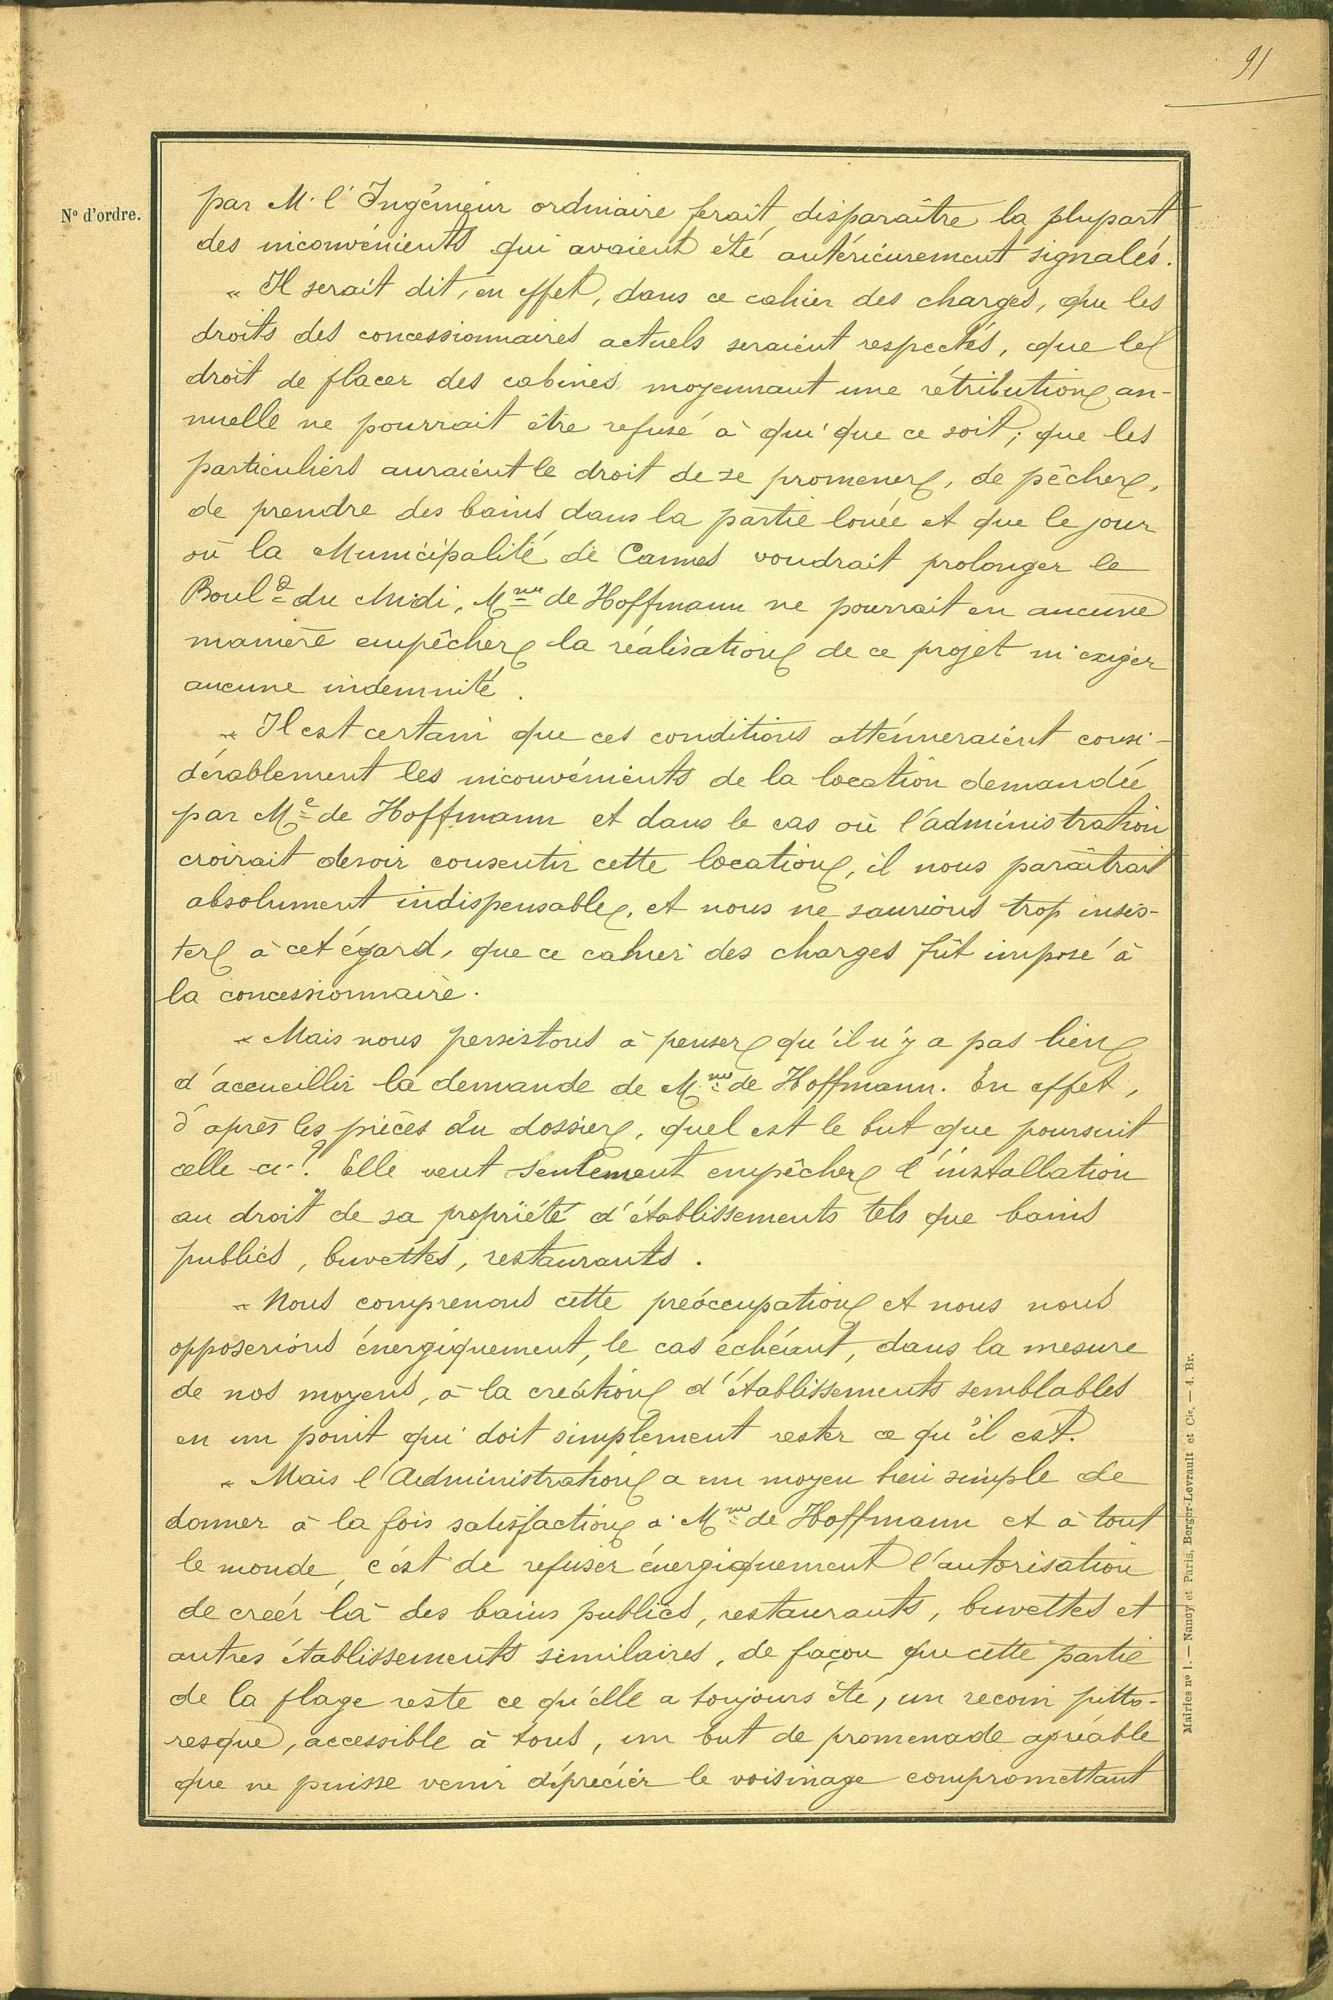 91
N° d'ordre.
par M. l'Ingénieur ordinaire ferait disparaître la plupart
des inconvénients qui avaient été antérieurement signalés.
« Il serait dit, en effet, dans ce cahier des charges, que les
droits des concessionnaires actuels seraient respectés, que le
droit de placer des cabines moyennant une rétribution an-
nuelle ne pourrait être refusé à qui que ce soit; que les
particuliers auraient le droit de se promener, de pêcher,
de prendre des bains dans la partie louée et que le jour
où la Municipalité de Cannes voudrait prolonger le
Boul<sup>d</sup> du Midi, M<sup>me</sup> de Hoffmann ne pourrait en aucune
manière empêcher la réalisation de ce projet ni exiger
aucune indemnité.
« Il est certain que ces conditions atténueraient consi-
dérablement les inconvénients de la location demandée
par M<sup>e</sup> de Hoffmann et dans le cas où l'administration
croirait devoir consentir cette location, il nous paraîtrait
absolument indispensable, et nous ne saurions trop insis-
ter à cet égard, que ce cahier des charges fût imposé à
la concessionnaire.
« Mais nous persistons à penser qu'il n'y a pas lieu
d'accueillir la demande de M<sup>me</sup> de Hoffmann. En effet,
d'après les pièces du dossier, quel est le but que poursuit
celle-ci? Elle veut seulement empêcher l'installation
au droit de sa propriété d'établissements tels que bains
publics, buvettes, restaurants.
« Nous comprenons cette préoccupation et nous nous
opposerions énergiquement, le cas échéant, dans la mesure
de nos moyens, à la création d'établissements semblables
en un point qui doit simplement rester ce qu'il est.
« Mais l'Administration a un moyen bien simple de
donner à la fois satisfaction à M<sup>me</sup> de Hoffmann et à tout
le monde, c'est de refuser énergiquement l'autorisation
de créer là des bains publics, restaurants, buvettes et
autres établissements similaires, de façon que cette partie
de la plage reste ce qu'elle a toujours été, un recoin pitto-
resque, accessible à tous, un but de promenade agréable
que ne puisse venir déprécier le voisinage compromettant
Mairies n° 1. — Nancy et Paris, Berger-Levrault et Cie. — 4. Br.